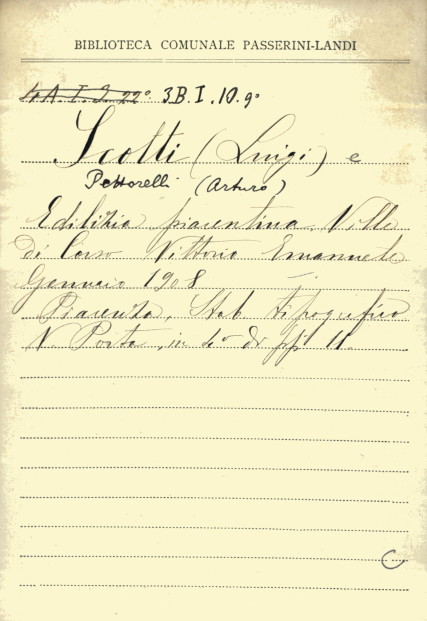 BIBLIOTECA COMUNALE PASSERINI-LANDI
4.A.I.2 22° 3.B.I.10.9°
Scotti (Luigi) e
Pettorelli (Arturo)
Edilizia piacentina. Ville
di Corso Vittorio Emanuele
Gennaio 1908
Piacenza, Stab. tipografico
N. Porta, in 4° pp. 11.
C